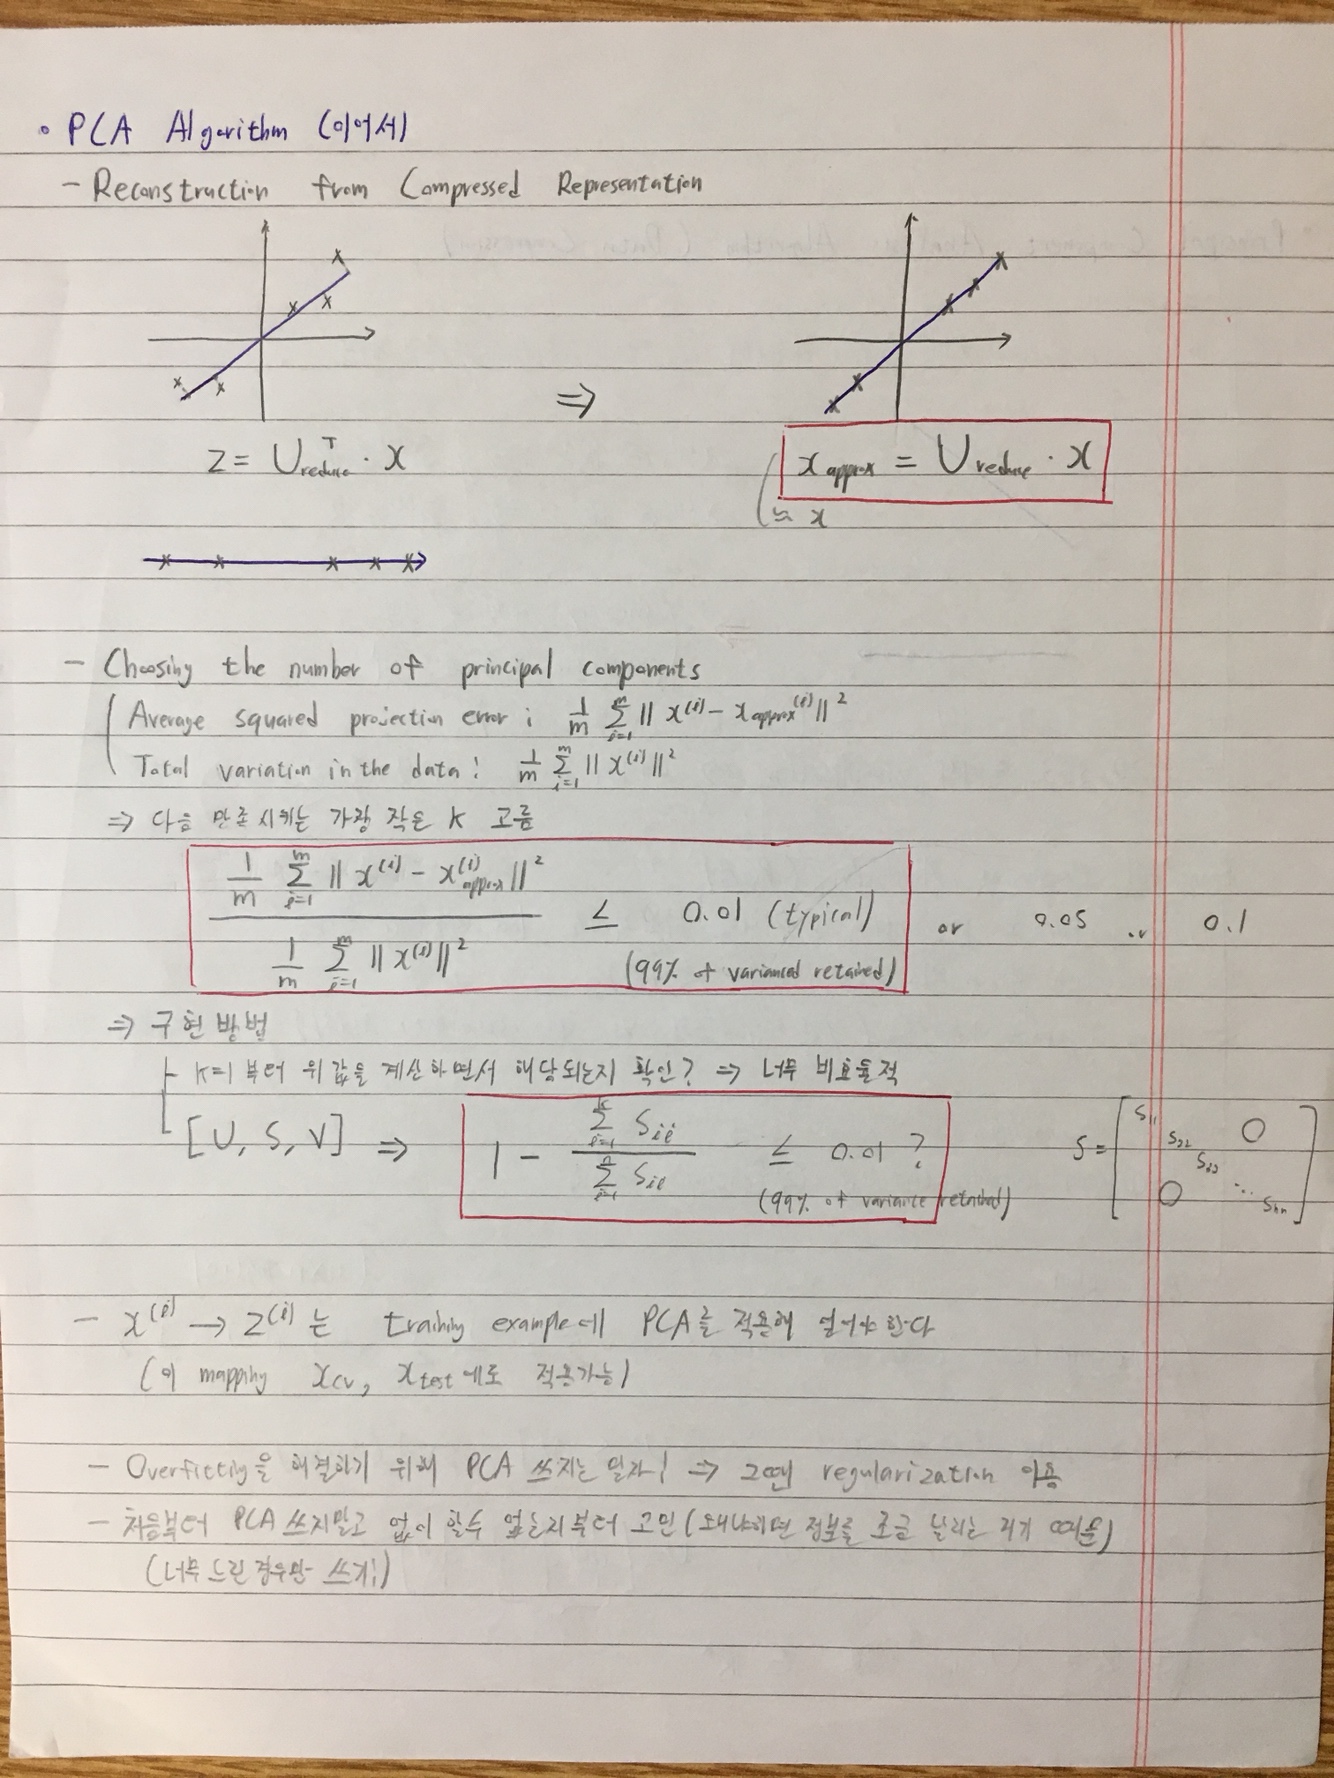 • PCA Algorithm (이어서)
- Reconstruction from Compressed Representation
⇒
z = U_reduce^T · x
x_approx = U_reduce · x
≈ x
- Choosing the number of principal components
Average squared projection error : 1/m Σ_{i=1}^{m} || x^(i) - x_approx^(i) ||^2
Total variation in the data : 1/m Σ_{i=1}^{m} || x^(i) ||^2
⇒ 다음 만족시키는 가장 작은 k 고름
1/m Σ_{i=1}^{m} || x^(i) - x_approx^(i) ||^2 / 1/m Σ_{i=1}^{m} || x^(i) ||^2 ≤ 0.01 (typical) or 0.05 or 0.1
(99% of varianced retained)
⇒ 구현 방법
k=1 부터 위 값을 계산하면서 해당되는지 확인? ⇒ 너무 비효율적
[U, S, V] ⇒ 1 - Σ_{i=1}^{k} S_ii / Σ_{i=1}^{n} S_ii ≤ 0.01 ? S = [ S_11 S_22 S_33 ⋱ S_nn 0 0 ]
(99% of variance retained)
- x^(i) → z^(i) 는 training example에 PCA를 적용해 얻어야 한다
(이 mapping x_cv, x_test에도 적용가능)
- Overfitting을 해결하기 위해 PCA 쓰지는 말자! ⇒ 그땐 regularization 이용
- 처음부터 PCA 쓰지말고 없이 할수 없는지부터 고민 (왜냐하면 정보를 조금 날리는 거기 때문)
(너무 느린 경우만 쓰기!)